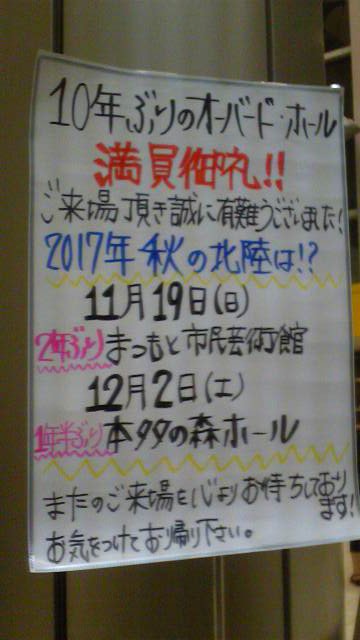 10年ぶりのオーバード・ホール
満員御礼!!
ご来場頂き誠に有難うございました!
2017年 秋の北陸は!?
11月19日(日)
2年ぶり まつもと市民芸術館
12月2日(土)
1年半ぶり 本多の森ホール
またのご来場を心よりお待ちしており
ます!
お気をつけてお帰り下さい。